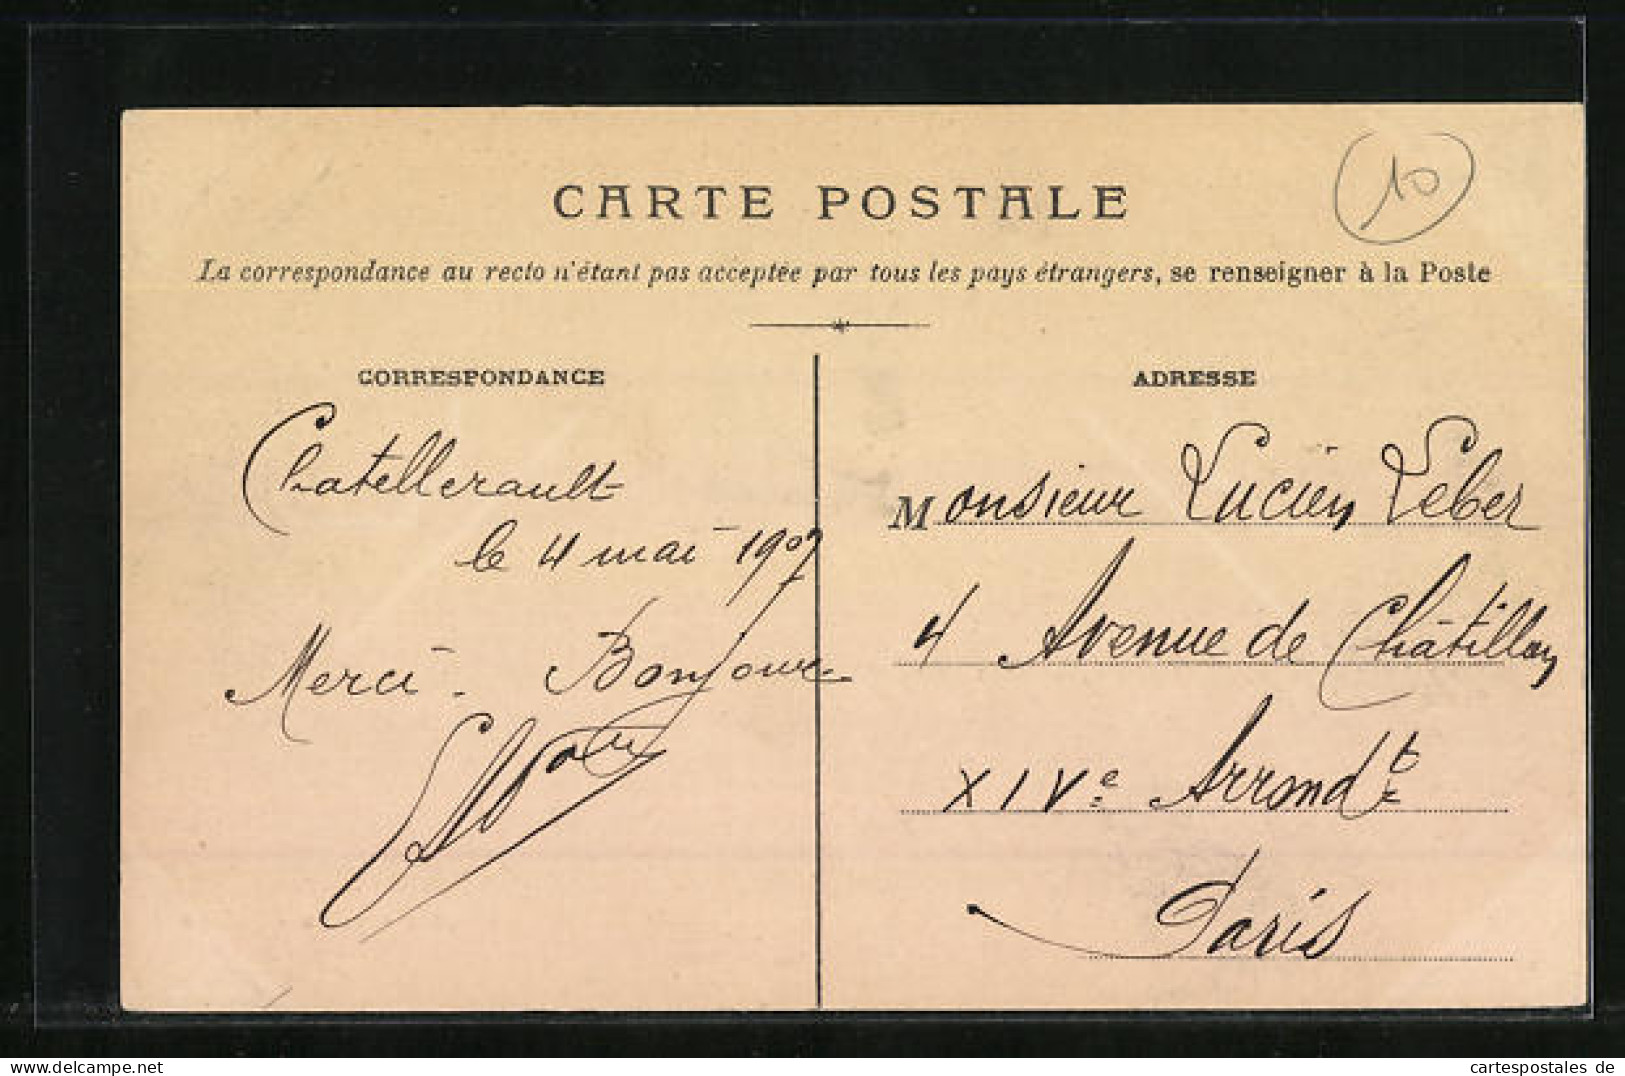 10
CARTE POSTALE
La correspondance au recto n'étant pas acceptée par tous les pays étrangers, se renseigner à la Poste
CORRESPONDANCE
Chatellerault
le 4 mai 1907
Merci. Bonjour
ADRESSE
Monsieur Lucien Leber
4 Avenue de Châtillon
XIVe Arrondt
Paris
cartespostales de